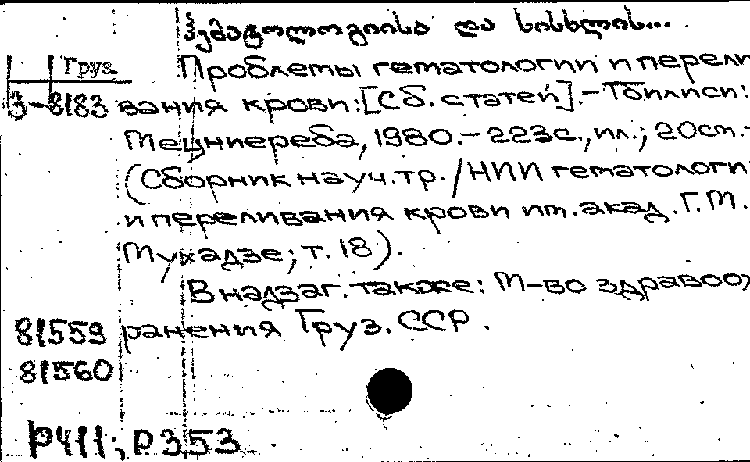 ჰემატოლოგიისა და სისხლის...
Груз.
Проблемы гематологии и перели
3-8183 вания крови: [Сб. статей]. - Тбилиси:
Мецниереба, 1980. - 223с., ил.; 20см. -
(Сборник науч. тр. / НИИ гематологи
и переливания крови им. акад. Г.М.
Мухадзе; т. 18).
В надзаг. также: М-во здравоо
81559 ранения Груз. ССР.
81560
Р411; Р353